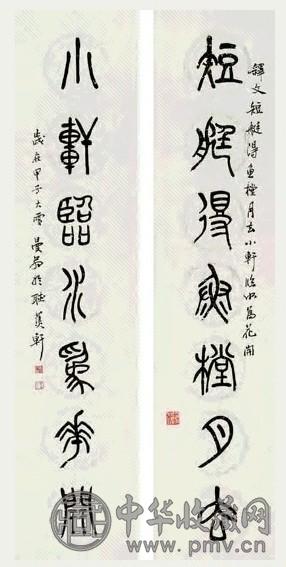 釋文短艇得魚樘月去小軒臨水爲花開
短艇得魚樘月去
小軒臨水爲花開
歲在甲子大雪曼翁於軒
中华收藏网
www.pmv.cn